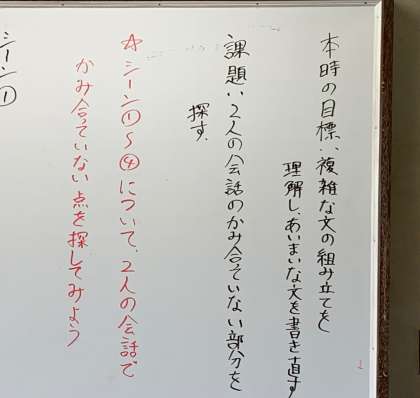 本時の目標：複雑な文の組み立てを
理解し、あいまいな文を書き直す
課題：2人の会話のかみ合っていない部分を
探す。
☆シーン①〜④について、2人の会話で
かみ合っていない点を探してみよう
シーン①